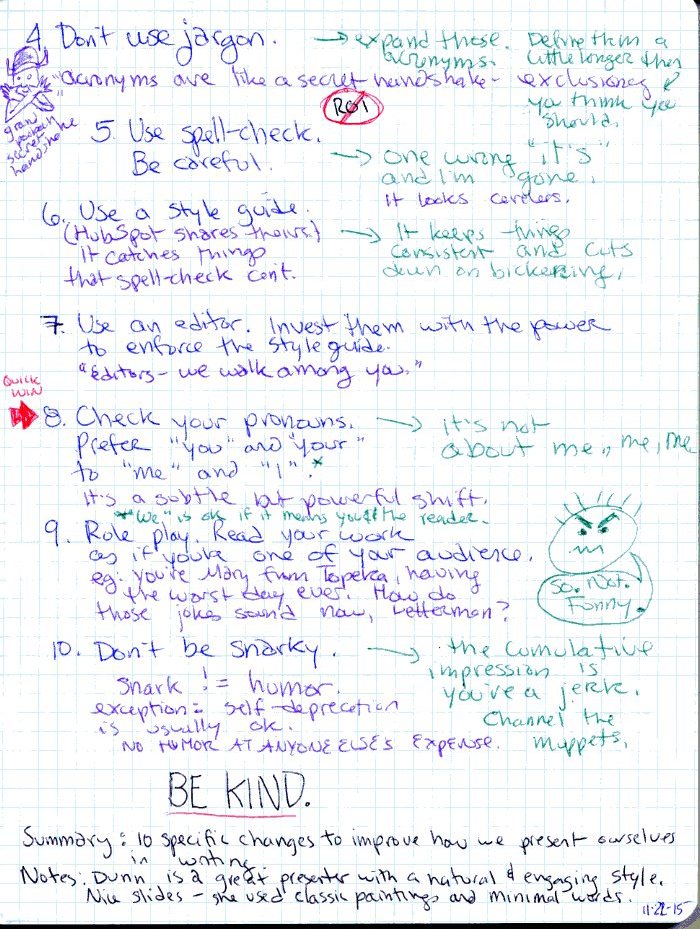 4. Don't use jargon. → expand those acronyms. Define them a little longer than you think you should.
"acronyms are like a secret handshake - exclusionary"
grand poobah secret handshake
ROI
5. Use spell-check.
Be careful. → one wrong "it's"
and I'm gone.
It looks careless.
6. Use a style guide.
(HubSpot shares theirs.) → It keeps things
It catches things consistent and cuts
that spell-check can't. down on bickering.
7. Use an editor. Invest them with the power
to enforce the style guide.
"Editors - we walk among you."
QUICK
WIN
8. Check your pronouns. → it's not
Prefer "you" and "your" about me, me, me
to "me" and "I".*
It's a subtle but powerful shift.
*"We" is ok if it means you & the reader.
9. Role play. Read your work
as if you're one of your audience.
eg: you're Mary from Topeka, having
the worst day ever. How do
those jokes sound now, Letterman?
So. Not.
Funny.
10. Don't be snarky. → the cumulative
impression is
snark != humor. you're a jerk.
exception: self-deprecation
is usually ok. Channel the
NO HUMOR AT ANYONE ELSE'S EXPENSE. muppets.
BE KIND.
Summary: 10 specific changes to improve how we present ourselves
in writing.
Notes: Dunn is a great presenter with a natural & engaging style.
Nice slides - she used classic paintings and minimal words.
11-22-15